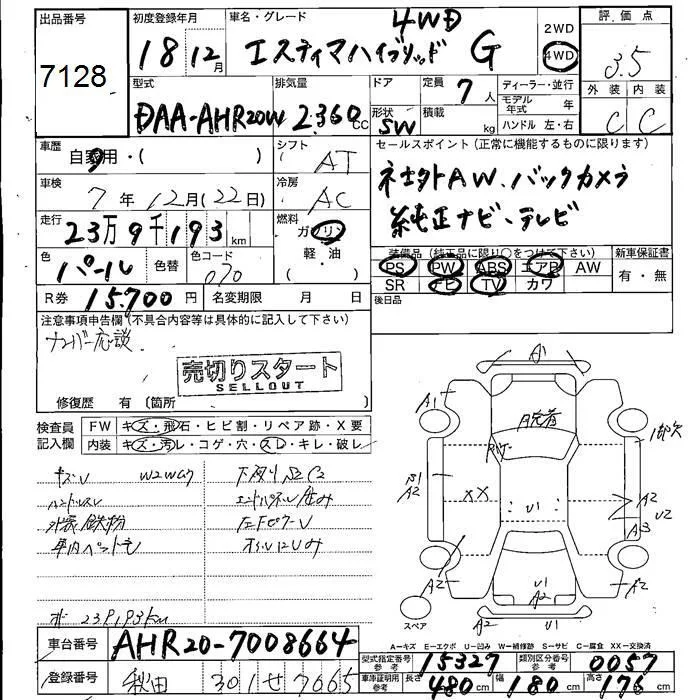 出品番号 7128
初度登録年月 18年12月
車名・グレード エスティマハイブリッド G 4WD
2WD 4WD
評価点 3.5
外装 C 内装 C
型式 DAA-AHR20W
排気量 2.360cc
ドア
形状 SW
定員 7人
積載 kg
ディーラー・並行
モデル年式 年
ハンドル 左・右
車歴 自家用・( )
シフト AT
車検 7年12月(22日)
冷房 AC
走行 23万9千193km
燃料 ガソリン 軽・油 ( )
色 パール
色替
色コード 070
R券 15.700円
名変期限 月 日
セールスポイント(正常に機能するものに限ります)
AW.バックカメラ
純正ナビ・テレビ
装備品(純正品に限り○をつけて下さい)
PS PW ABS エアB AW
SR ナビ TV カワ
新車保証書
有・無
後日品
注意事項申告欄(不具合内容等は具体的に記入して下さい)
ナンバー応談
売切りスタート
SELLOUT
修復歴 有(箇所
検査員記入欄
FW キズ・飛石・ヒビ割・リペア跡・X要
内装 キズ・汚レ・コゲ・穴・スレ・キレ・破レ
キズU
ハンドルスレ
外装鉄粉
下廻りS C2
239.193km
A1
A1
脱着
A2
XX
U1
A2
U2
A3
A2
U1
A2
A2
U1
スペア
A=キズ E=エクボ U=凹み W=補修跡 S=サビ C=腐食 XX=交換済
車台番号 AHR20-7008664
登録番号 秋田 301せ7665
型式指定番号 参考 15327
類別区分番号 参考 0057
車庫証明用 参考 長さ 480cm 幅 180cm 高さ 176cm